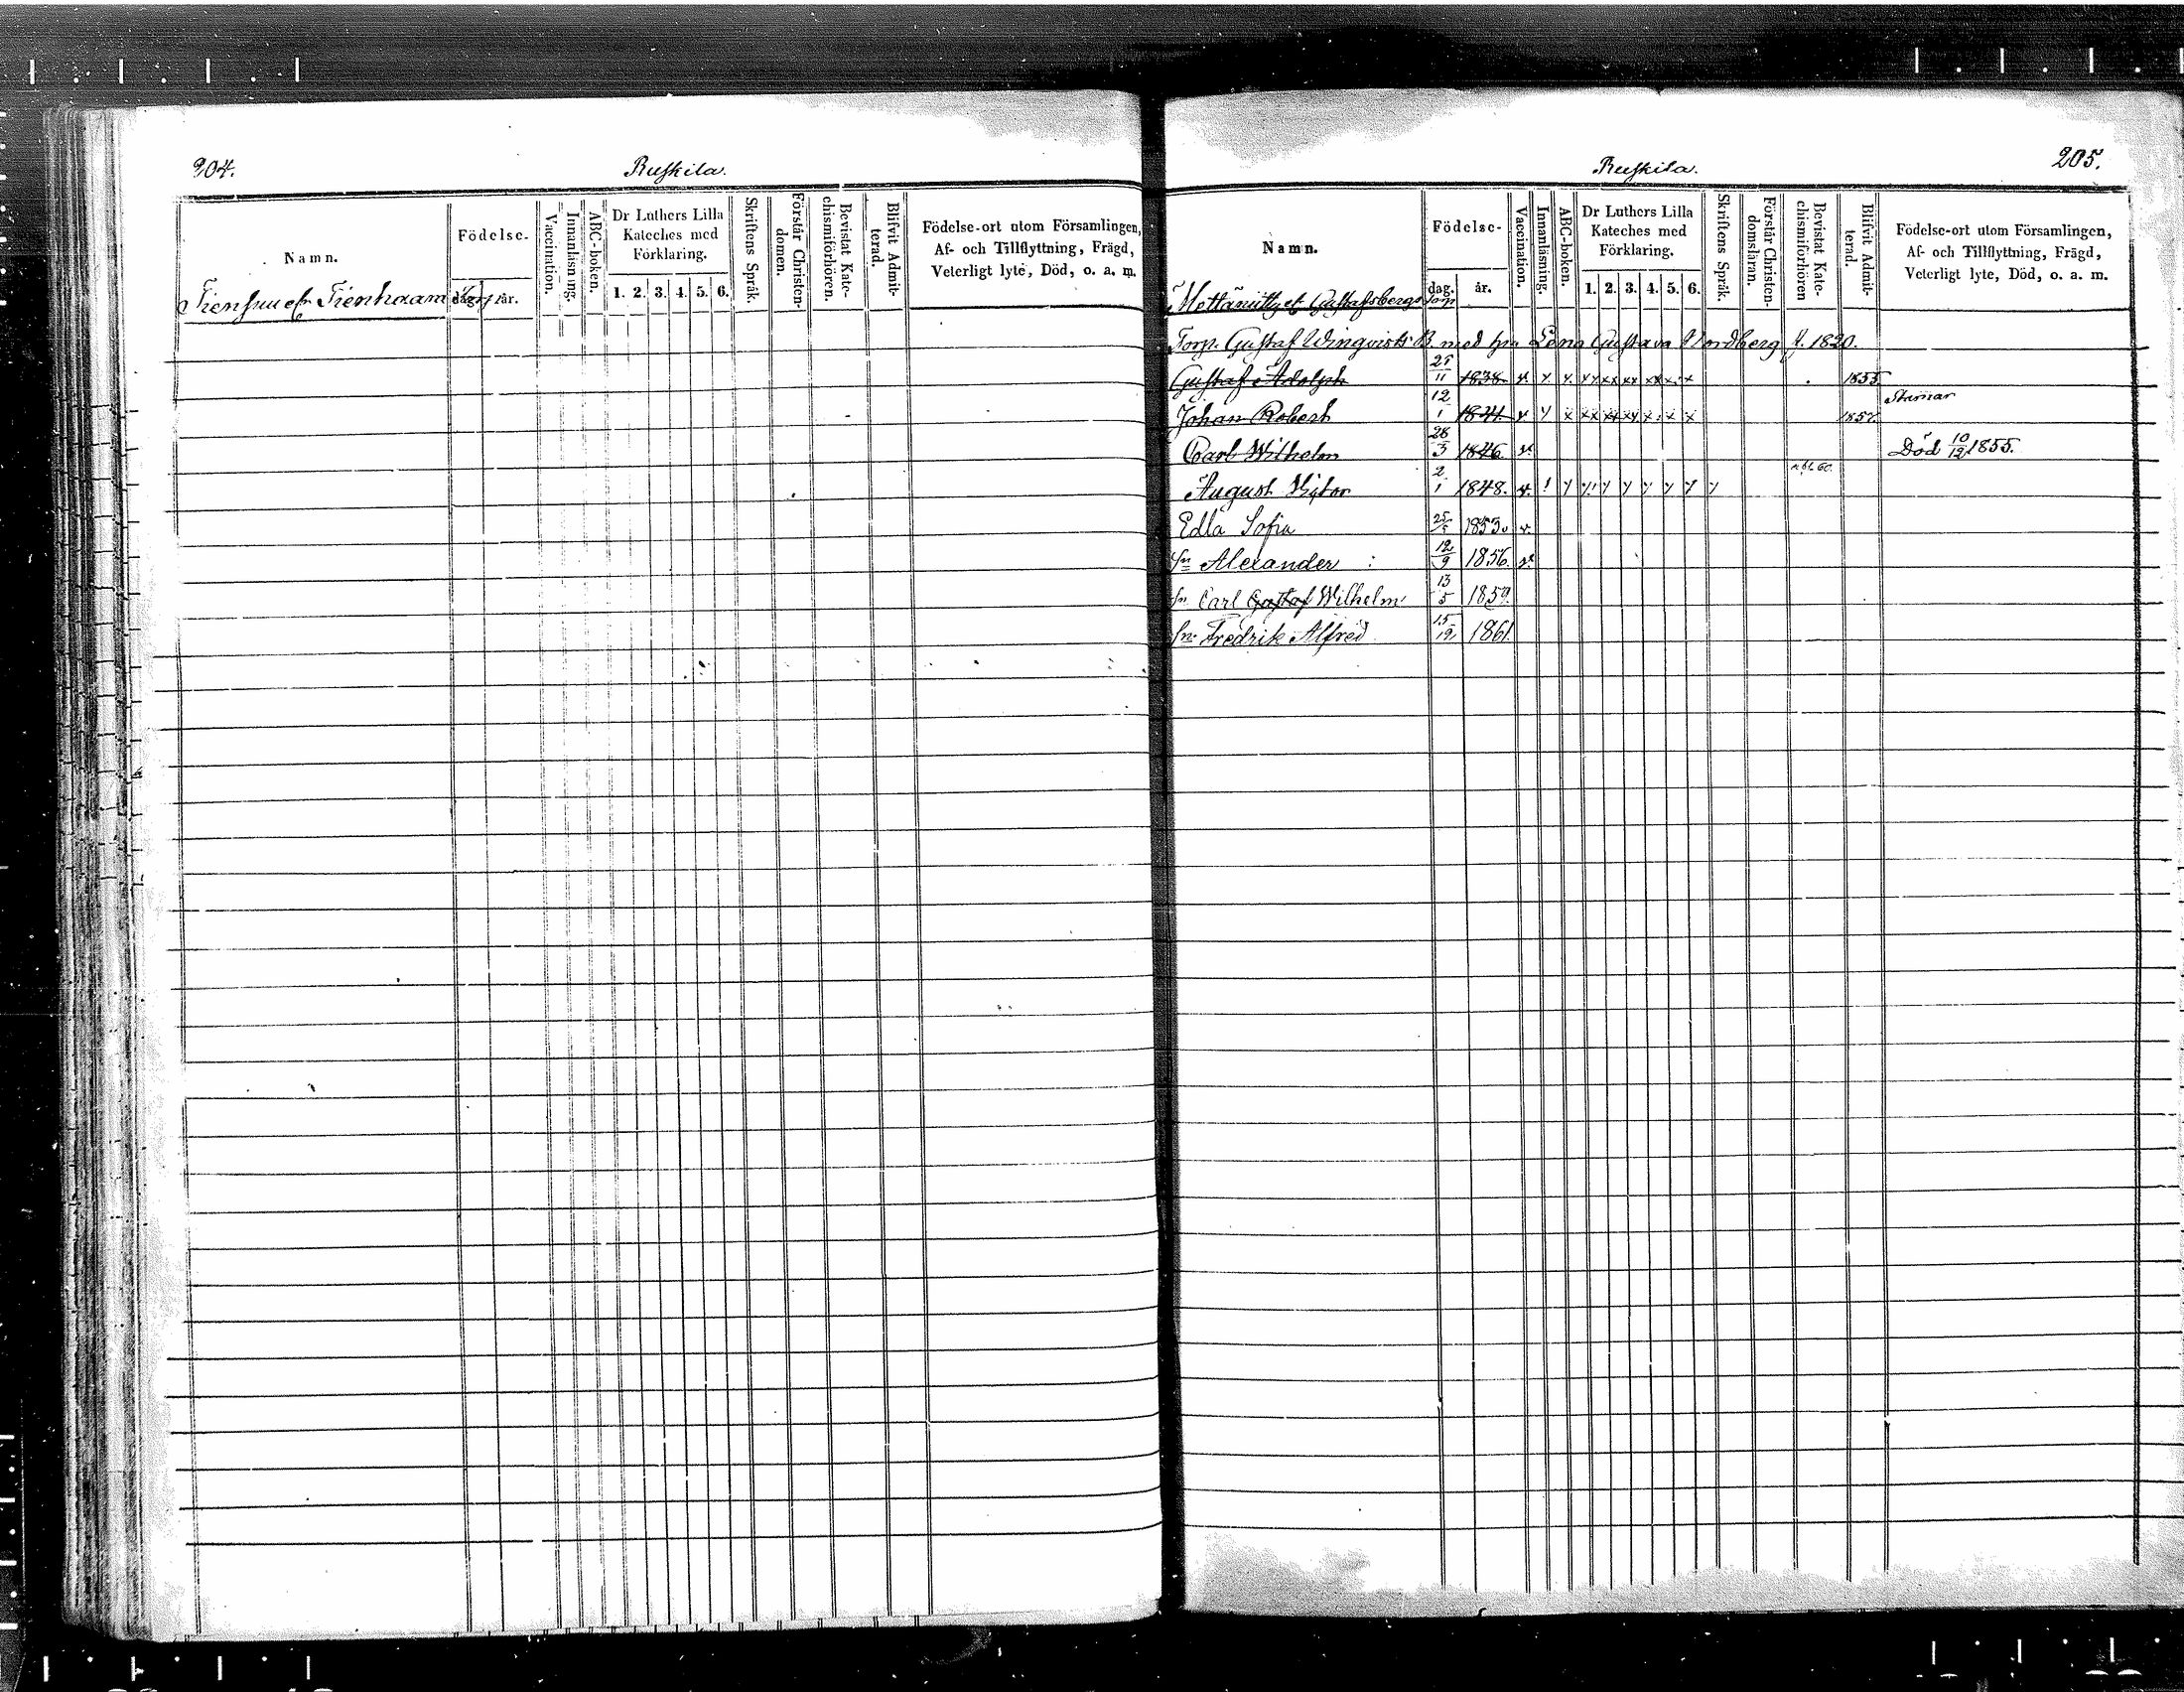 204.
Ruskila.
Namn.
Födelse-
dag.
år.
Vaccination.
Innanläsning.
ABC-boken.
Dr Luthers Lilla Kateches med Förklaring.
1. 2. 3. 4. 5. 6.
Skriftens Språk.
Förstår Christendomen.
Bevistat Katechismiförhören.
Blifvit Admitterad.
Födelse-ort utom Församlingen,
Af- och Tillflyttning, Frägd,
Veterligt lyte, Död, o. a. m.
Tiensuu el. Tienhaara
205.
Ruskila.
Namn.
Födelse-
dag.
år.
Vaccination.
Innanläsning.
ABC-boken.
Dr Luthers Lilla Kateches med Förklaring.
1. 2. 3. 4. 5. 6.
Skriftens Språk.
Förstår Christendomsläran.
Bevistat Katechismiförhören
Blifvit Admitterad.
Födelse-ort utom Församlingen,
Af- och Tillflyttning, Frägd,
Veterligt lyte, Död, o. a. m.
Gustafsbergs Torp
Torp. Gustaf Winqvists B med hu Lena Gustava Nordberg f. 1820.
Gustaf Adolph 25/11 1838. 1855
Johan Robert 12/1 1841. 1857.
Carl Wilhelm 28/3 1846. Död 10/12 1855.
August Viktor 2/1 1848.
Edla Sofia 1853.
Sn Alexander 12/9 1856.
Sn Carl Gustaf Wilhelm 13/5 1859.
Sn Fredrik Alfred 15/12 1861.